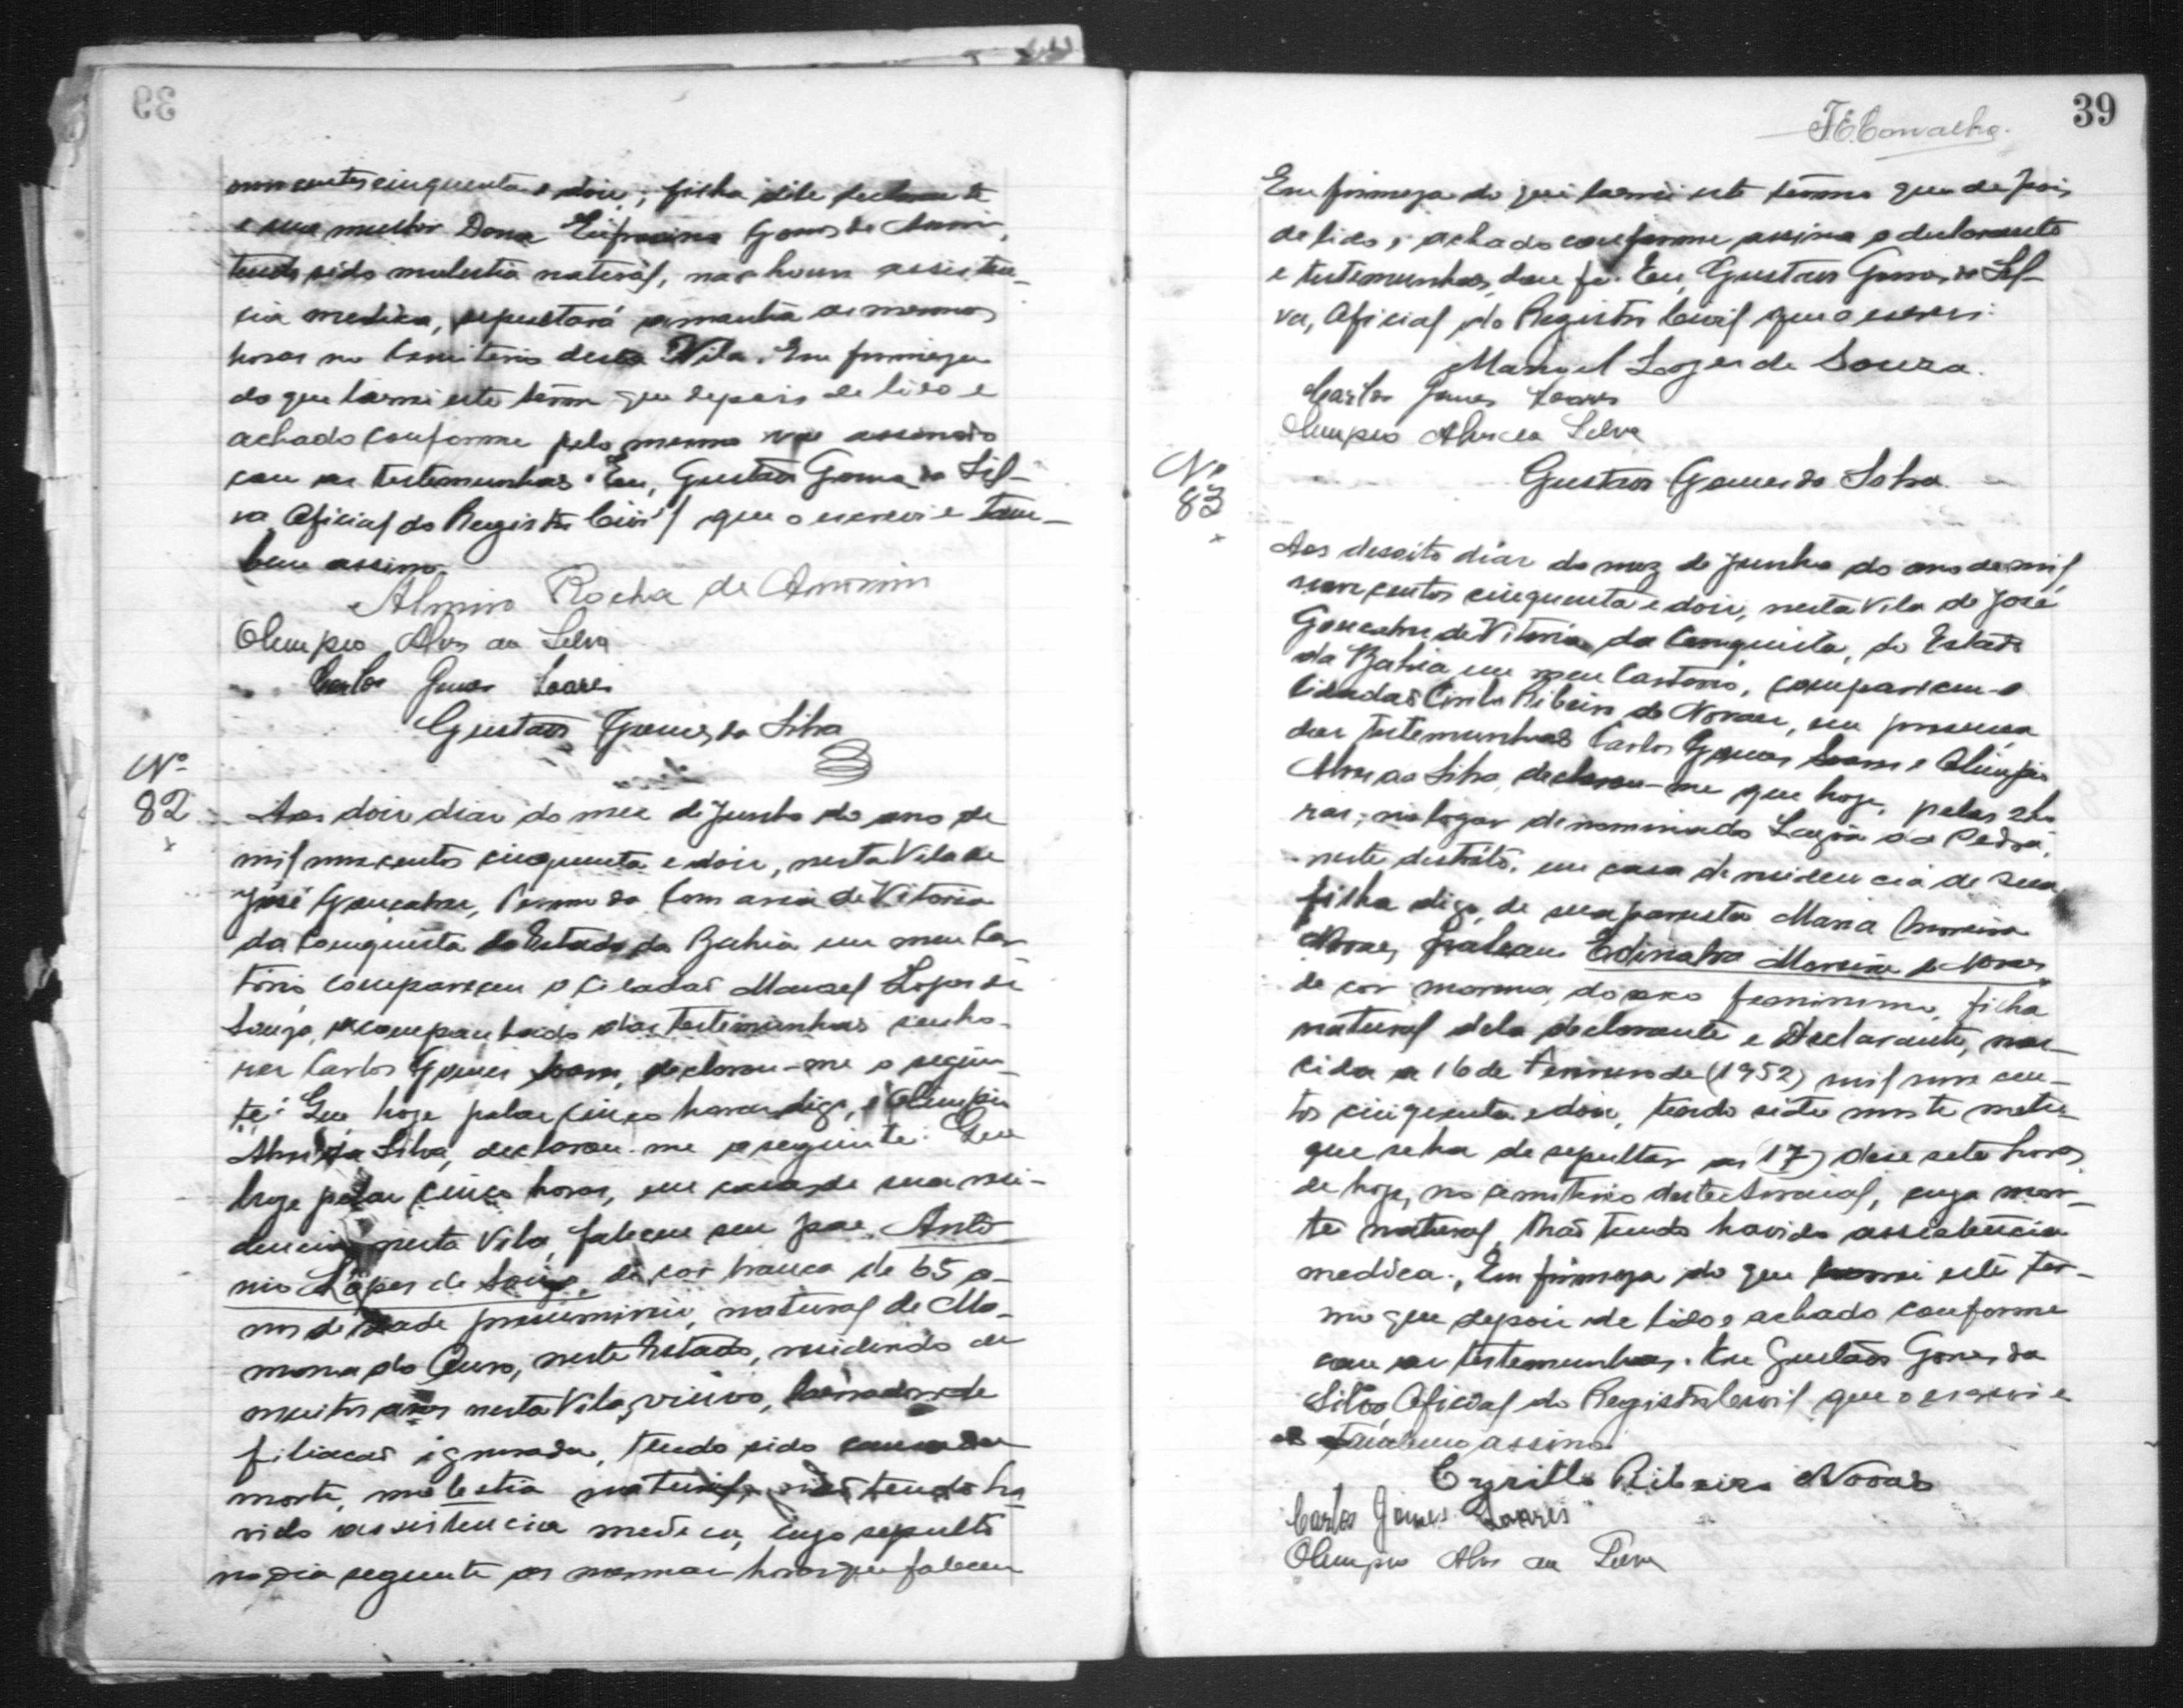 39
novecentos cinquenta e dois; filha dele declarante
e sua mulher Dona Gomes de
tendo sido molestia natural, não houve assisten-
cia medica, sepultará amanhã as mesmas
horas no Cemiterio desta Vila. Em firmeza
do que lavrei este têrmo que depois de lido e
achado conforme pelo mesmo vae assinado
com as testemunhas. Eu, Gustavo Gomes da Sil-
va Oficial do Registro Civil que o escrevi e tam-
bem assino.
Rocha de Amorim
Olimpio Alves da Silva
Carlos Gomes Soares
Gustavo Gomes da Silva
Nº
82
x
Aos dois dias do mez de Junho do ano de
mil novecentos cinquenta e dois, nesta Vila de
José Gonçalves, Termo da Comarca de Vitoria
da Conquista do Estado da Bahia em meu Car
torio compareceu o Cidadão Manoel Lopes de
Souza, acompanhado das testemunhas senho-
res Carlos Gomes Soares, declarou-me o seguin-
te: Que hoje pelas cinco horas digo, e Olimpio
Alves da Silva, declarou-me o seguinte: Que
hoje pelas cinco horas, em casa de sua resi-
dencia nesta Vila, faleceu seu pae, Anto
nio Lopes de Souza, de cor branca de 65 a-
nos de idade presumiveis, natural de
do Ouro, neste Estado, residindo de
muitos anos nesta Vila, viuvo, lavrador de
filiação ignorada, tendo sido causa da
morte, molestia natural, não tendo ha
vido assistencia medica, cujo sepulto
no dia seguinte as mesmas horas que faleceu
39
Em firmeza do que lavrei este têrmo que depois
de lido e achado conforme assina o declarante
e testemunhas, dou fé. Eu, Gustavo Gomes da Sil-
va, Oficial do Registro Civil que o escrevi.
Manoel Lopes de Souza.
Carlos Gomes Soares
Olimpio Alves da Silva
Gustavo Gomes da Silva
Nº
83
x
Aos desoito dias do mez de Junho do ano de mil
novecentos cinquenta e dois, nesta Vila de José
Gonçalves de Vitoria da Conquista, do Estado
da Bahia em meu Cartorio, compareceu o
Cidadão Cirilo Ribeiro de Novaes, em presença
das testemunhas Carlos Gomes Soares e Olimpio
Alves da Silva, declarou-me que hoje, pelas 2 ho
ras, no logar denominado Lagôa da Pedra,
neste distrito, em casa de residencia de sua
filha digo, de sua parenta Maria Moreira
Novaes, faleceu Edinalva Moreira de Novaes
de cor morena, do sexo feminino, filha
natural dela declarante e Declarante, nas-
cida a 16 de Fevereiro de (1952) mil nove cen-
tos cinquenta e dois, tendo sido
que se ha de sepultar as (17) dese sete horas
de hoje, no cemiterio deste Arraial, cuja mor-
te natural, não tendo havido assistencia
medica. Em firmeza do que lavrei este ter-
mo que depois de lido e achado conforme
com as testemunhas. Eu Gustavo Gomes da
Silva Oficial do Registro Civil que o escrevi e
tambem assino.
Cyrillo Ribeiro Novaes
Carlos Gomes Soares
Olimpio Alves da Silva